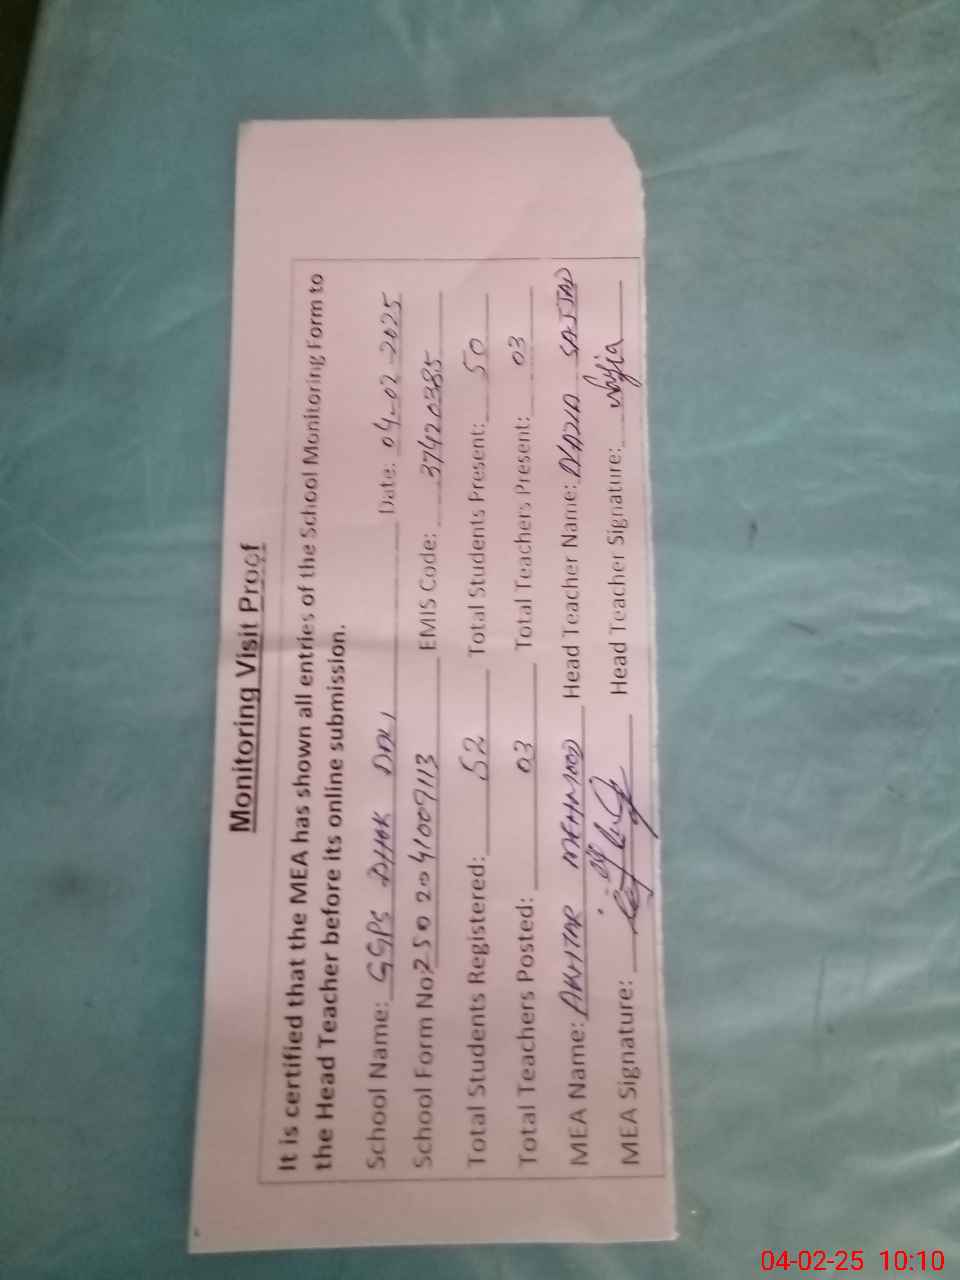 Monitoring Visit Proof
It is certified that the MEA has shown all entries of the School Monitoring Form to
the Head Teacher before its online submission.
School Name: GGPS DHOK DALI Date: 04-02-2025
School Form No: 2502041009113 EMIS Code: 37420385
Total Students Registered: 52 Total Students Present: 50
Total Teachers Posted: 03 Total Teachers Present: 03
MEA Name: AKHTAR MEHMOOD Head Teacher Name: NAZIA SAJJAD
MEA Signature: Head Teacher Signature:
04-02-25 10:10